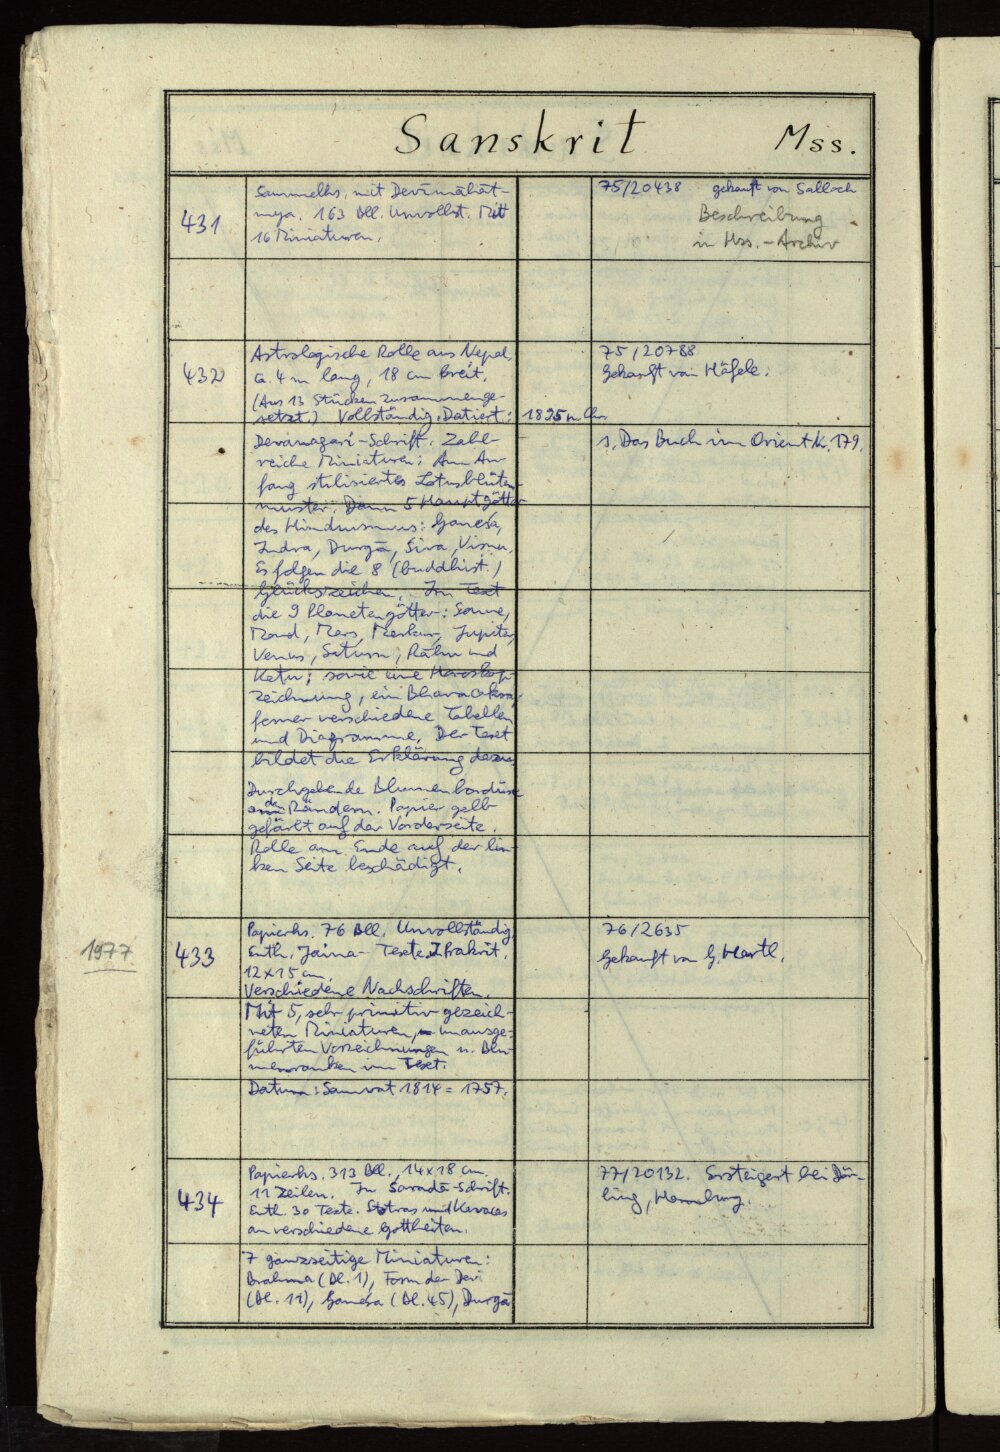 Sanskrit Mss.
431
Sammelhs. mit Devīmāhāt-
mya. 163 Bll. Unvollst. Mit
16 Miniaturen.
75/20438 gekauft von Salloch
Beschreibung
in Hss.-Archiv
432
Astrologische Rolle aus Nepal.
Ca. 4 m lang, 18 cm breit.
(Aus 13 Stücken zusammenge-
setzt.) Vollständig. Datiert: 1895 n. Chr.
Devanagari-Schrift. Zahl-
reiche Miniaturen: Am An-
fang stilisiertes Lotusblüten-
muster. Dann 5 Hauptgötter
des Hinduismus: Ganeśa,
Indra, Durgā, Śiva, Visnu.
Es folgen die 8 (buddhist.)
Glückszeichen. Im Text
die 9 Planetengötter: Sonne,
Mond, Mars, Merkur, Jupiter,
Venus, Saturn, Rāhu und
Ketu; sowie eine Horoskop-
zeichnung, ein Bhavacakra,
ferner verschiedene Tabellen
und Diagramme. Der Text
bildet die Erklärung dazu
Durchgehende Blumenbordüre
an den Rändern. Papier gelb
gefärbt auf der Vorderseite.
Rolle am Ende auf der lin-
ken Seite beschädigt.
75/20788
Gekauft von Häfele.
s. Das Buch im Orient K. 179.
1977
433
Papierhs. 76 Bll. Unvollständig
Enth. Jaina-Texte. Prakrit.
12 x 15 cm.
Verschiedene Nachschriften.
Mit 5, sehr primitiv gezeich-
neten Miniaturen, unausge-
führten Vorzeichnungen u. Blu-
menranken im Text.
Datum: Samvat 1814 = 1757.
76/2635
Gekauft von G. Hartl.
434
Papierhs. 313 Bll., 14 x 18 cm.
11 Zeilen. In Śaradā-Schrift.
Enth. 30 Texte. Stotras und Kavacas
an verschiedene Gottheiten.
7 ganzseitige Miniaturen:
Brahma (Bl. 1), Form der Devi
(Bl. 11), Ganeśa (Bl. 45), Durgā
77/20132. Ersteigert bei Dör-
ling, Hamburg.